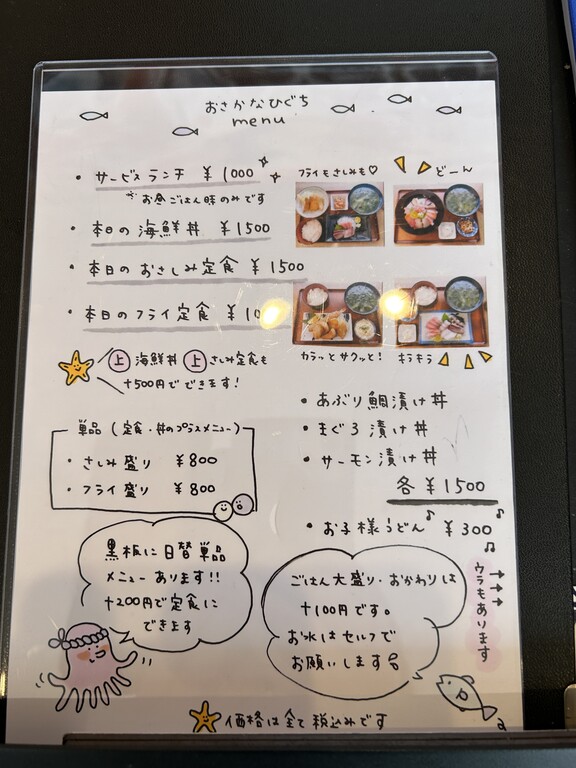 おさかなひぐち
menu
・サービスランチ ¥1000
お昼ごはん時のみです
・本日の海鮮丼 ¥1500
・本日のおさしみ定食 ¥1500
・本日のフライ定食 ¥10
上 海鮮丼 上 さしみ定食も
+500円でできます!
フライもさしみも♡
どーん
カラッとサクッと!
キラキラ
単品(定食・丼のプラスメニュー)
・さしみ盛り ¥800
・フライ盛り ¥800
・あぶり鯛漬け丼
・まぐろ漬け丼
・サーモン漬け丼
各¥1500
・お子様うどん ¥300
黒板に日替単品
メニューあります!!
+200円で定食に
できます
ごはん大盛り・おかわりは
+100円です。
お水はセルフで
お願いします
ウラもあります
価格は全て税込みです